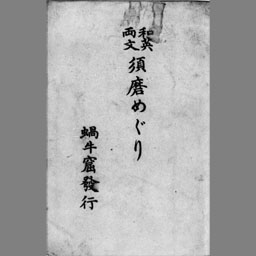 和英
両文
須磨めぐり
蝸牛窟發行